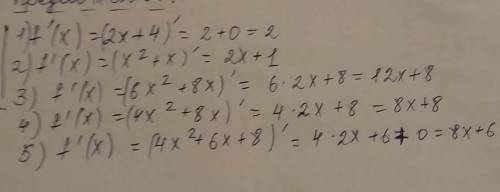 1) f'(x) = (2x+4)' = 2+0 = 2
2) f'(x) = (x² + x)' = 2x+1
3) f'(x) = (6x² + 8x)' = 6·2x+8 = 12x+8
4) f'(x) = (4x² + 8x)' = 4·2x+8 = 8x+8
5) f'(x) = (4x² + 6x + 8)' = 4·2x+6+0 = 8x+6